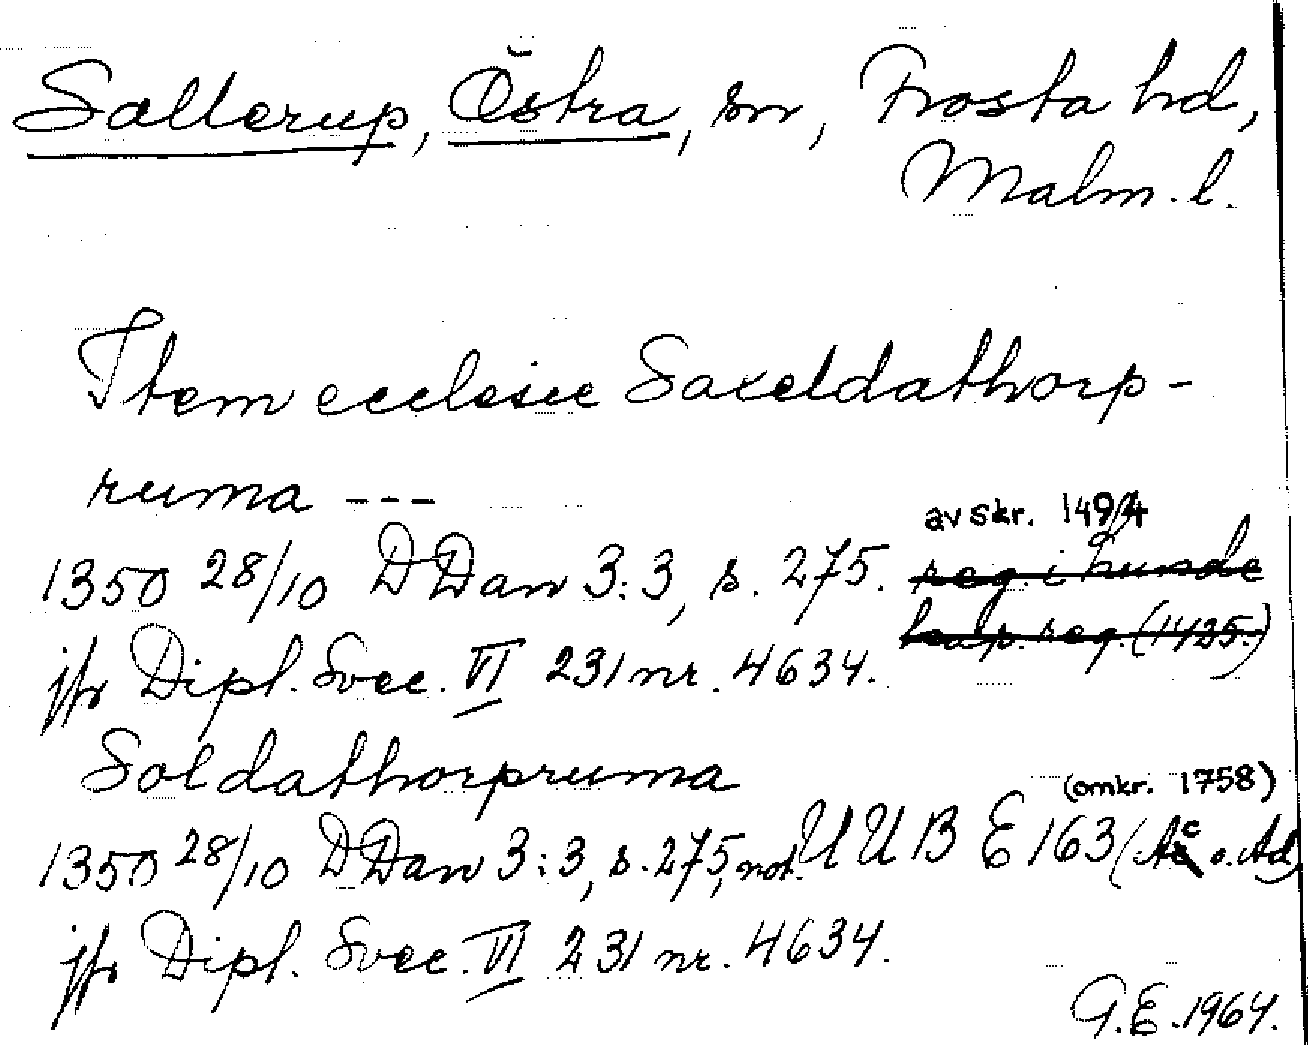 Sallerup, Östra, sn, Frosta hd,
Malm. l.
Item ecclesie Saxeldathorp-
ruma ---
avskr. 1494
1350 28/10 DDan 3:3, s. 275. reg. i Lunde
jfr Dipl. Svec. VI 231 nr. 4634.
Soldathorpruma
(omkr. 1758)
1350 28/10 DDan 3:3, s. 275, not. UUB E 163 (Ac o. Ad)
jfr Dipl. Svec. VI 231 nr. 4634.
G.E. 1964.